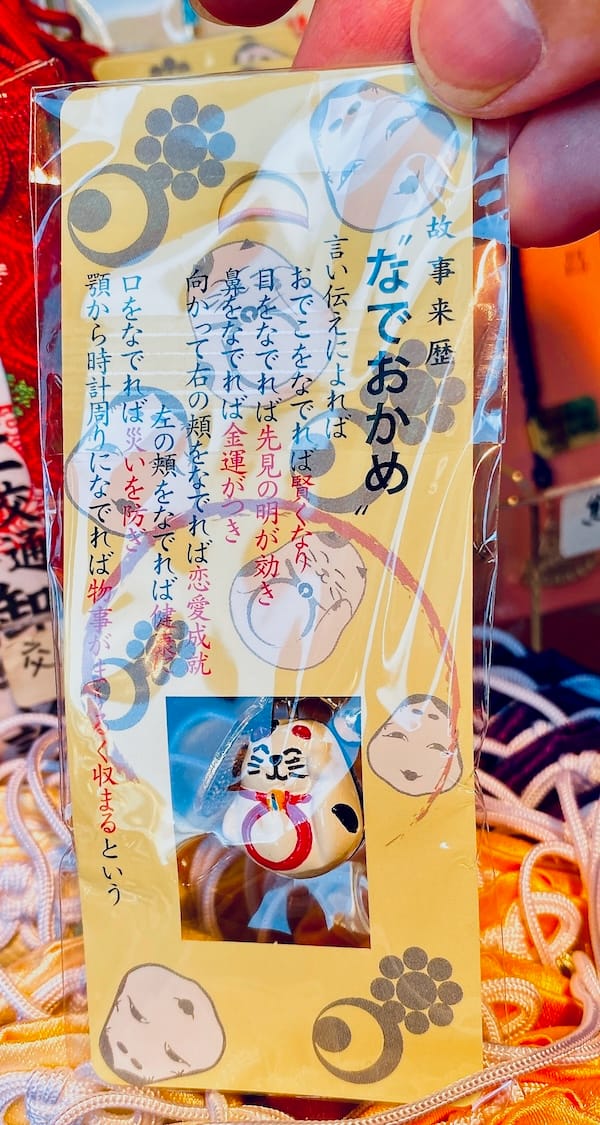 故事来歴
"なでおかめ"
言い伝えによれば
おでこをなでれば賢くなり
目をなでれば先見の明が効き
鼻をなでれば金運がつき
向かって右の頬をなでれば恋愛成就
左の頬をなでれば健康
口をなでれば災いを防ぎ
顎から時計周りになでれば物事がまるく収まるという
交通
交